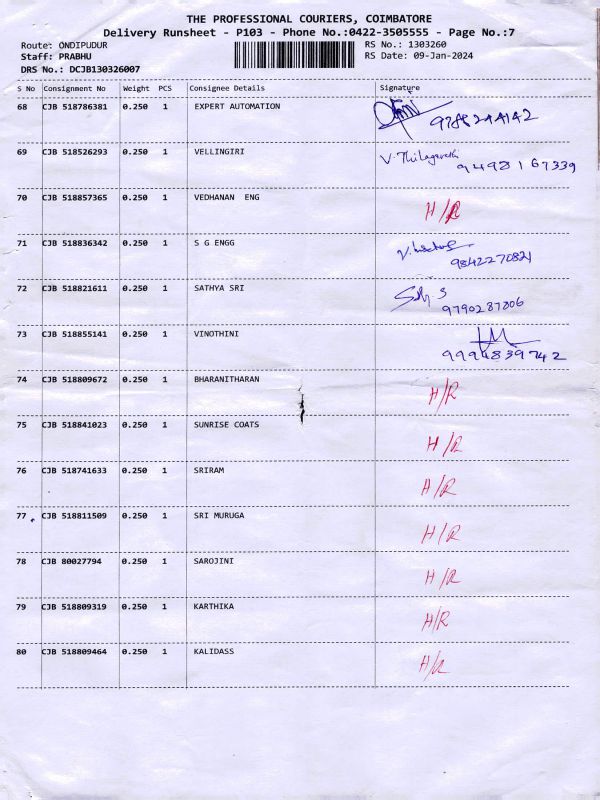 THE PROFESSIONAL COURIERS, COIMBATORE
Delivery Runsheet - P103 - Phone No.:0422-3505555 - Page No.:7
Route: ONDIPUDUR RS No.: 1303260
Staff: PRABHU RS Date: 09-Jan-2024
DRS No.: DCJB130326007
S No Consignment No Weight PCS Consignee Details Signature
68 CJB 518786381 0.250 1 EXPERT AUTOMATION
69 CJB 518526293 0.250 1 VELLINGIRI V. Thilagavathi
9498167339
70 CJB 518857365 0.250 1 VEDHANAN ENG H/R
71 CJB 518836342 0.250 1 S G ENGG
9842270821
72 CJB 518821611 0.250 1 SATHYA SRI
9790287806
73 CJB 518855141 0.250 1 VINOTHINI
9994839742
74 CJB 518809672 0.250 1 BHARANITHARAN H/R
75 CJB 518841023 0.250 1 SUNRISE COATS H/R
76 CJB 518741633 0.250 1 SRIRAM H/R
77 CJB 518811509 0.250 1 SRI MURUGA H/R
78 CJB 80027794 0.250 1 SAROJINI H/R
79 CJB 518809319 0.250 1 KARTHIKA H/R
80 CJB 518809464 0.250 1 KALIDASS H/R